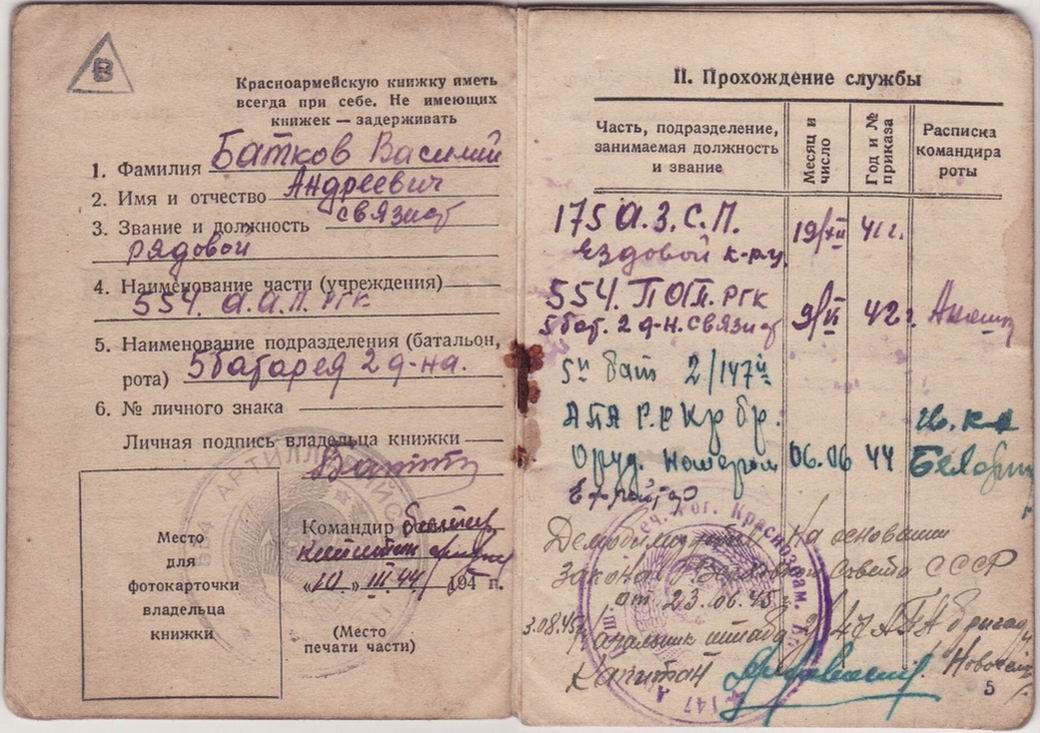 В
Красноармейскую книжку иметь
всегда при себе. Не имеющих
книжек — задерживать
1. Фамилия Батков Василий
2. Имя и отчество Андреевич
3. Звание и должность связист
рядовой
4. Наименование части (учреждения)
554. А.А.П. РГК
5. Наименование подразделения (батальон,
рота) 5 батарея 2 д-на.
6. № личного знака
Личная подпись владельца книжки
Место
для
фотокарточки
владельца
книжки
Командир
«10» III 44 194 г.
(Место
печати части)
II. Прохождение службы
Часть, подразделение,
занимаемая должность
и звание
Месяц и
число
Год и №
приказа
Расписка
командира
роты
175 А.З.С.П. 19/XII 41 г.
Ездовой к-рц.
554. РГК 9/VI 42 г.
5 бат. 2 д-н. связист
5й бат 2/147й
АПА Р.Р.Кр бр.
Оруд. номером 06.06 44
Ефрейтор
Демобилизован на основании
Закона Верховного Совета СССР
от 23.06.45 г.
3.08.45 г. Начальник штаба 2/147 АПА бригады
Капитан
5